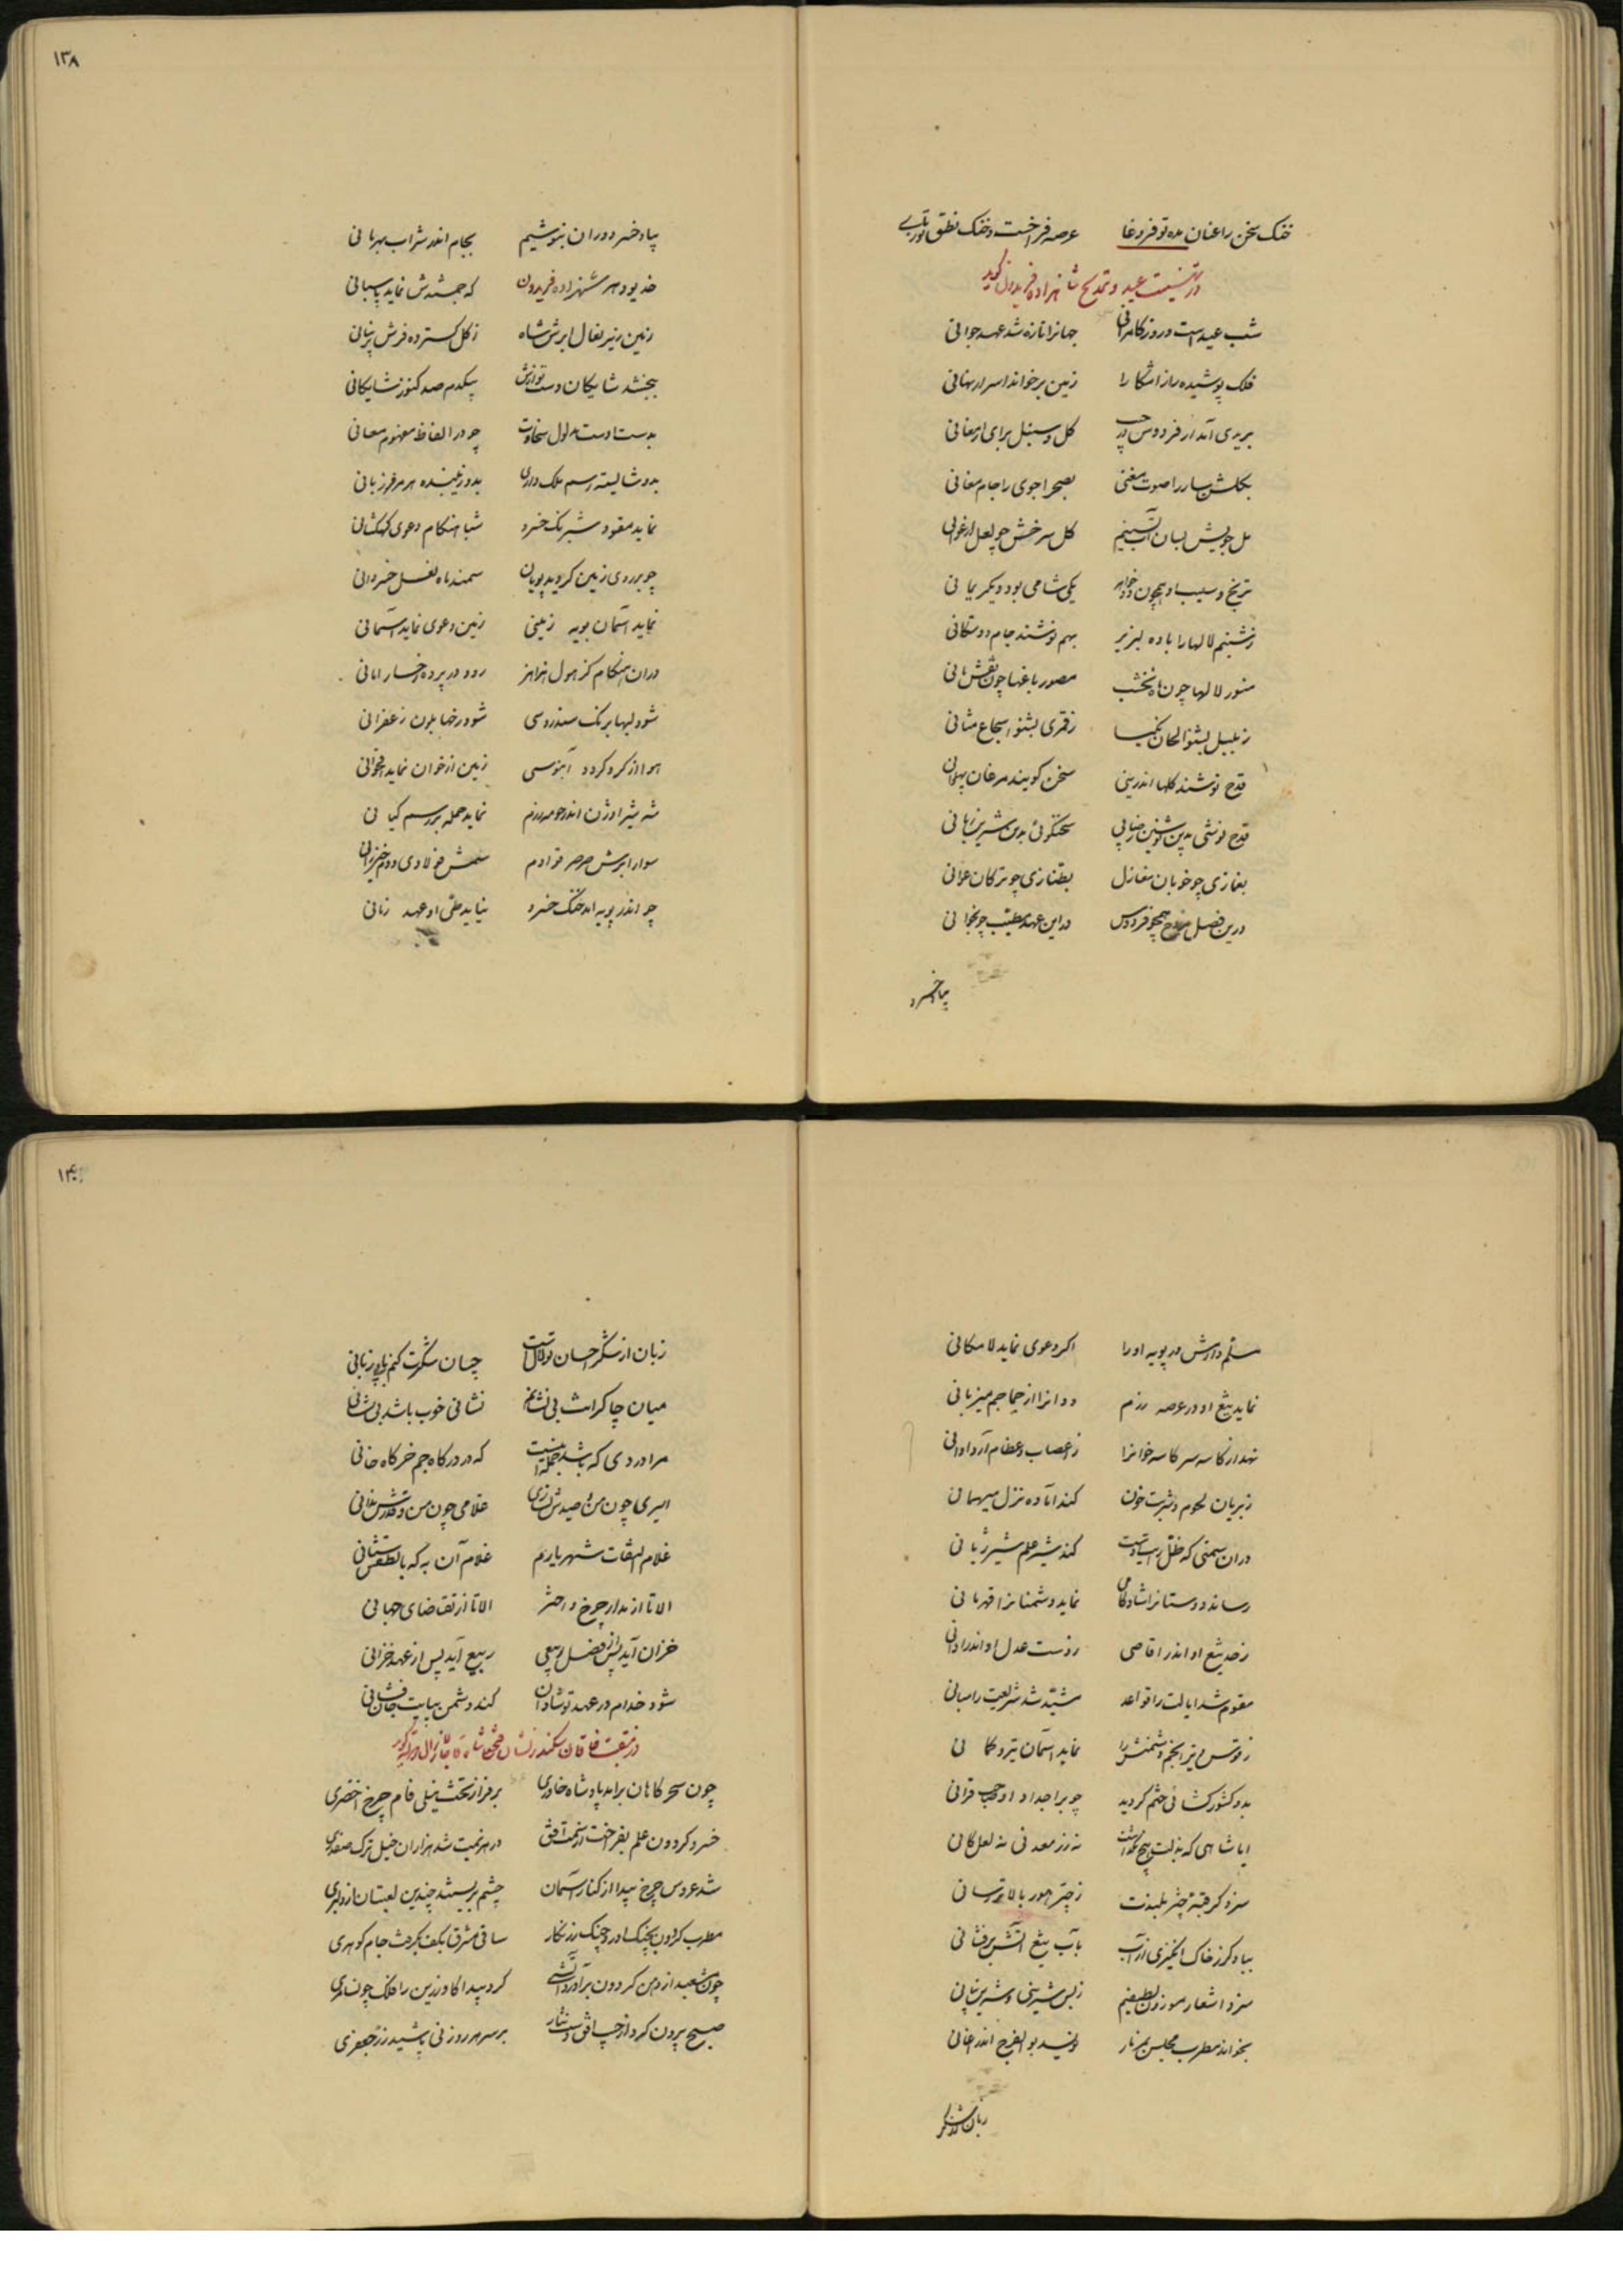 خنک سخن را عنان مده تو فروغا عرصه فراخست و خنک نطق تو
در تهنیت عید و تمدیح شاهزاده فریدون گوید
شب عید است و روز کامرانی جهانرا تازه شد عهد جوانی
فلک پوشیده راز آشکارا زمین برخواند اسرار نهانی
بریدی آمد از فردوس گل و سنبل برای ارمغانی
بگلشن سار را صوت مغنی بصحرا جوی را جام مغانی
گل سرخش چو لعل ارغوانی
ترنج و سیب او همچون دو یکی شامی بود دیگر یمانی
ز شبنم لالها را باده لبریز بهم نوشند جام دوستکانی
منور لالها چون ماه نخشب مصور باغها چون نقش مانی
ز بلبل بشنو الحان نکیسا ز قمری بشنو اسجاع مثانی
قدح نوشند گلها اندرینی سخن گویند مرغان پهلوانی
قدح نوشی بدین نوشین سخنگوئی بدین شیرین زبانی
بغمازی چو خوبان مغازل بطنازی چو ترکان عوانی
درین فصل همچو فردوس در این عهد مطیب چونجوانی
بیاد خسرو
۱۳۸
بیاد خسرو دوران بنوشیم بجام اندر شراب بهرمانی
خدیو دهر شهزاده فریدون که جمشیدش نماید پاسبانی
زمین زیر نعال ابرش شاه ز گل گسترده فرش پرنیانی
ببخشد شایگان دست نوازش بیکدم صد کنوز شایگانی
بدست اوست مدلول سخاوت چو در الفاظ مفهوم معانی
بدو شایسته رسم ملک داری بدو زیبنده هر مرزبانی
نماید مقود شبرنگ خسرو شباهنگام دعوی کهکشانی
چو بر روی زمین گردید پویان سمند ماه نعل خسروانی
نماید آسمان پویه زمینی زمین دعوی نماید آسمانی
در آن هنگام کز هول هزاهز رود در پرده رخسار امانی
شود لبها برنک سندروسی شود رخها بلون زعفرانی
هوا از گرد گردد آبنوسی زمین از خون نماید ارغوانی
شه شیر اوژن اندر حومه رزم نماید حمله بر رسم کیانی
سوار ابرش صرصر قوادم سمش فولادی و دم خیزرانی
چو اندر پویه آمد خنک خسرو نیاید طی او عهد زمانی
مسلم دارش در پویه او را اگر دعوی نماید لامکانی
نماید تیغ او در عرصه رزم ددانرا از جماجم میزبانی
نهد از کاسه سر کاسه خوانرا ز اعصاب و عظام آرد اوانی
ز بریان لحوم و شربت خون کند آماده نزل میهمانی
کند شیر علم شیر ژیانی
رساند دوستانرا شادکامی نماید دشمنانرا قهرمانی
ز صیت تیغ او اندر اقاصی ز دست عدل او اندر ادانی
مقوم شد ایالت را قواعد مشید شد شریعت را مبانی
نماید آسمان تیر و کمانی
بدو کشورگشائی ختم گردید چو بر اجداد او صاحب قرانی
ایا شاهی که بذلت هیچ نگذاشت نه زر معدنی نه لعل کانی
سزد گر قبه چتر بلندت ز چتر هور بالاتر رسانی
بباد گرز خاک انگیزی از آب بآب تیغ آتش برفشانی
سزد اشعار موزون لطیفم ز بس شیرینی و شیرین بیانی
بخواند مطرب مجلس بمزمار نویسد بوالفرج اندر اغانی
زبان از شکر
۱۴۰
زبان از شکر احسان تو لالست چسان شکرت کنم با بی زبانی
میان چاکرانت بی نشانم نشانی خوب باشد بی نشانی
مرا دردی که باشد که در درگاه جم خرگاه خانی
غلامی چون من و قدرش ندانی
غلام التفات شهریارم غلام آن به که با لطفش ستانی
الا تا از مدار چرخ و اختر الا تا از تقاضای جهانی
خزان آید پس از فصل ربیعی ربیع آید پس از عهد خزانی
شود خدام در عهد تو شادان کند دشمن بپایت جان فشانی
در منقبت خاقان سکندر نشان فتحعلی شاه قاجار گوید
چون سحرگاهان برآمد پادشاه خاوری بر فراز تخت نیلی فام چرخ اخضری
خسرو گردون علم بفراخت از سمت افق در هزیمت شد هزاران خیل ترک صفدری
شد عروس چرخ پیدا از کنار آسمان چشم بربستند چندین لعبتان از دلبری
مطرب گردون بچنک آورد چنگ زرنگار ساقی مشرق بکف بگرفت جام گوهری
چون شعبد از دهن گردون برآورد آتشی کرد پیدا گاو زرین را فلک چون سامری
صبح بیرون کرد از جیب افق دست نثار بر سر هر روزنی پاشید زر جعفری